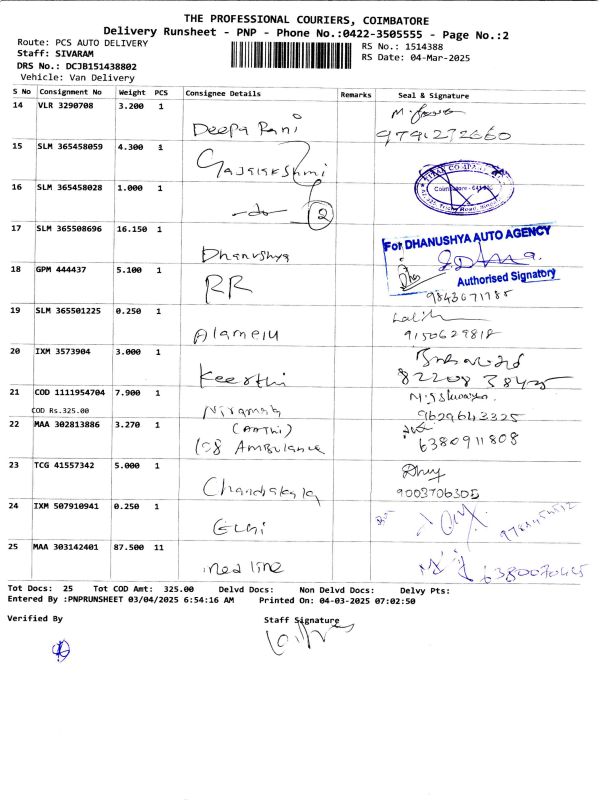 THE PROFESSIONAL COURIERS, COIMBATORE
Delivery Runsheet - PNP - Phone No.:0422-3505555 - Page No.:2
Route: PCS AUTO DELIVERY
Staff: SIVARAM
DRS No.: DCJB151438802
Vehicle: Van Delivery
RS No.: 1514388
RS Date: 04-Mar-2025
S No Consignment No Weight PCS Consignee Details Remarks Seal & Signature
14 VLR 3290708 3.200 1 Deepa Rani
15 SLM 365458059 4.300 1 Gajalakshmi
16 SLM 365458028 1.000 1 -do- 2
Coimbatore
17 SLM 365508696 16.150 1 Dhanushya
For DHANUSHYA AUTO AGENCY
Authorised Signatory
18 GPM 444437 5.100 1 RR 9843671788
19 SLM 365501225 0.250 1 Alamelu 9150629818
20 IXM 3573904 3.000 1 Keerthi 82208 38425
21 COD 1111954704 7.900 1 9629643325
COD Rs.325.00
22 MAA 302813886 3.270 1 (AATHI)
108 Ambulance 6380911808
23 TCG 41557342 5.000 1 Chandrakala 9003706305
24 IXM 507910941 0.250 1
25 MAA 303142401 87.500 11 Med line
Tot Docs: 25 Tot COD Amt: 325.00 Delvd Docs: Non Delvd Docs: Delvy Pts:
Entered By :PNPRUNSHEET 03/04/2025 6:54:16 AM Printed On: 04-03-2025 07:02:50
Verified By Staff Signature